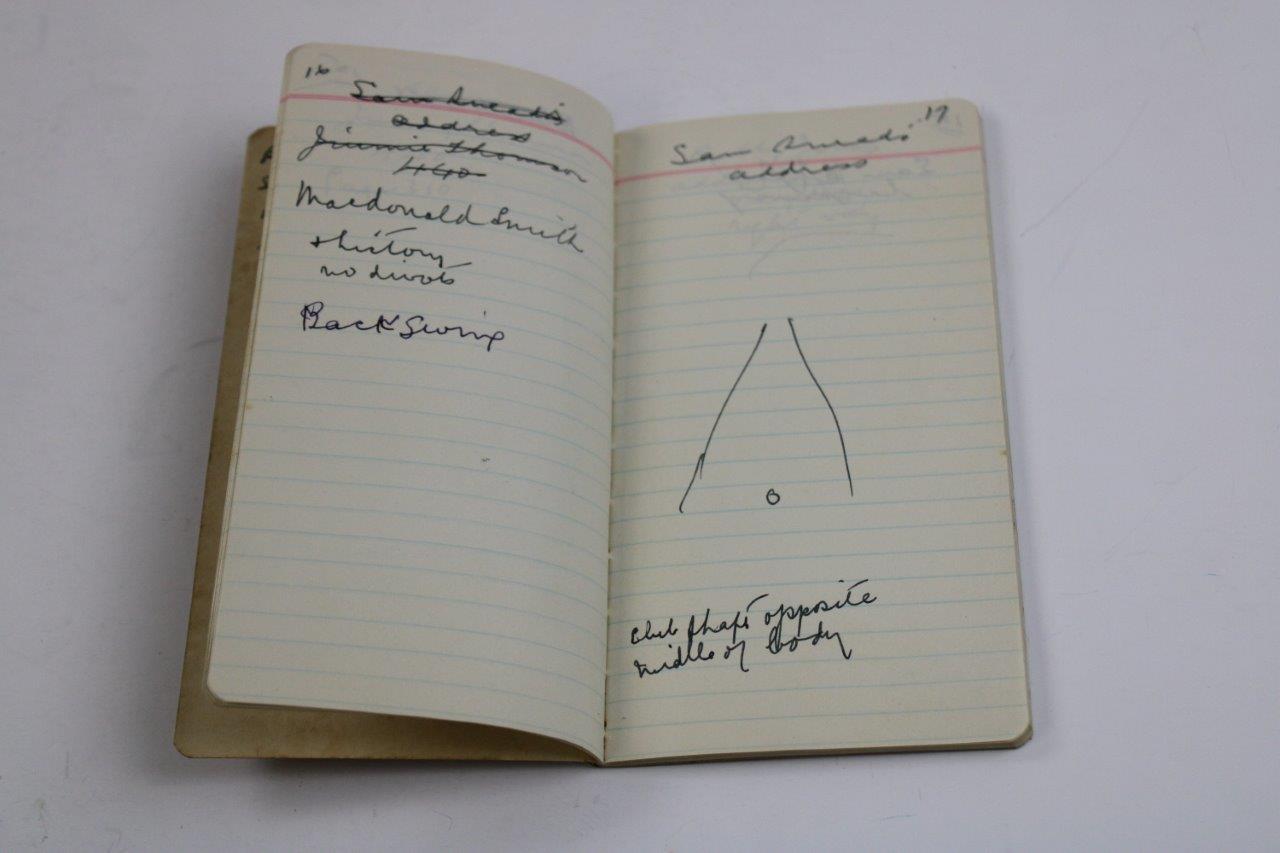 16
Sam Snead's
address
Jimmie Thomson
440
Macdonald Smith
+ history
no divots
Back Swing
17
Sam Snead's
address
club shaft opposite
middle of body